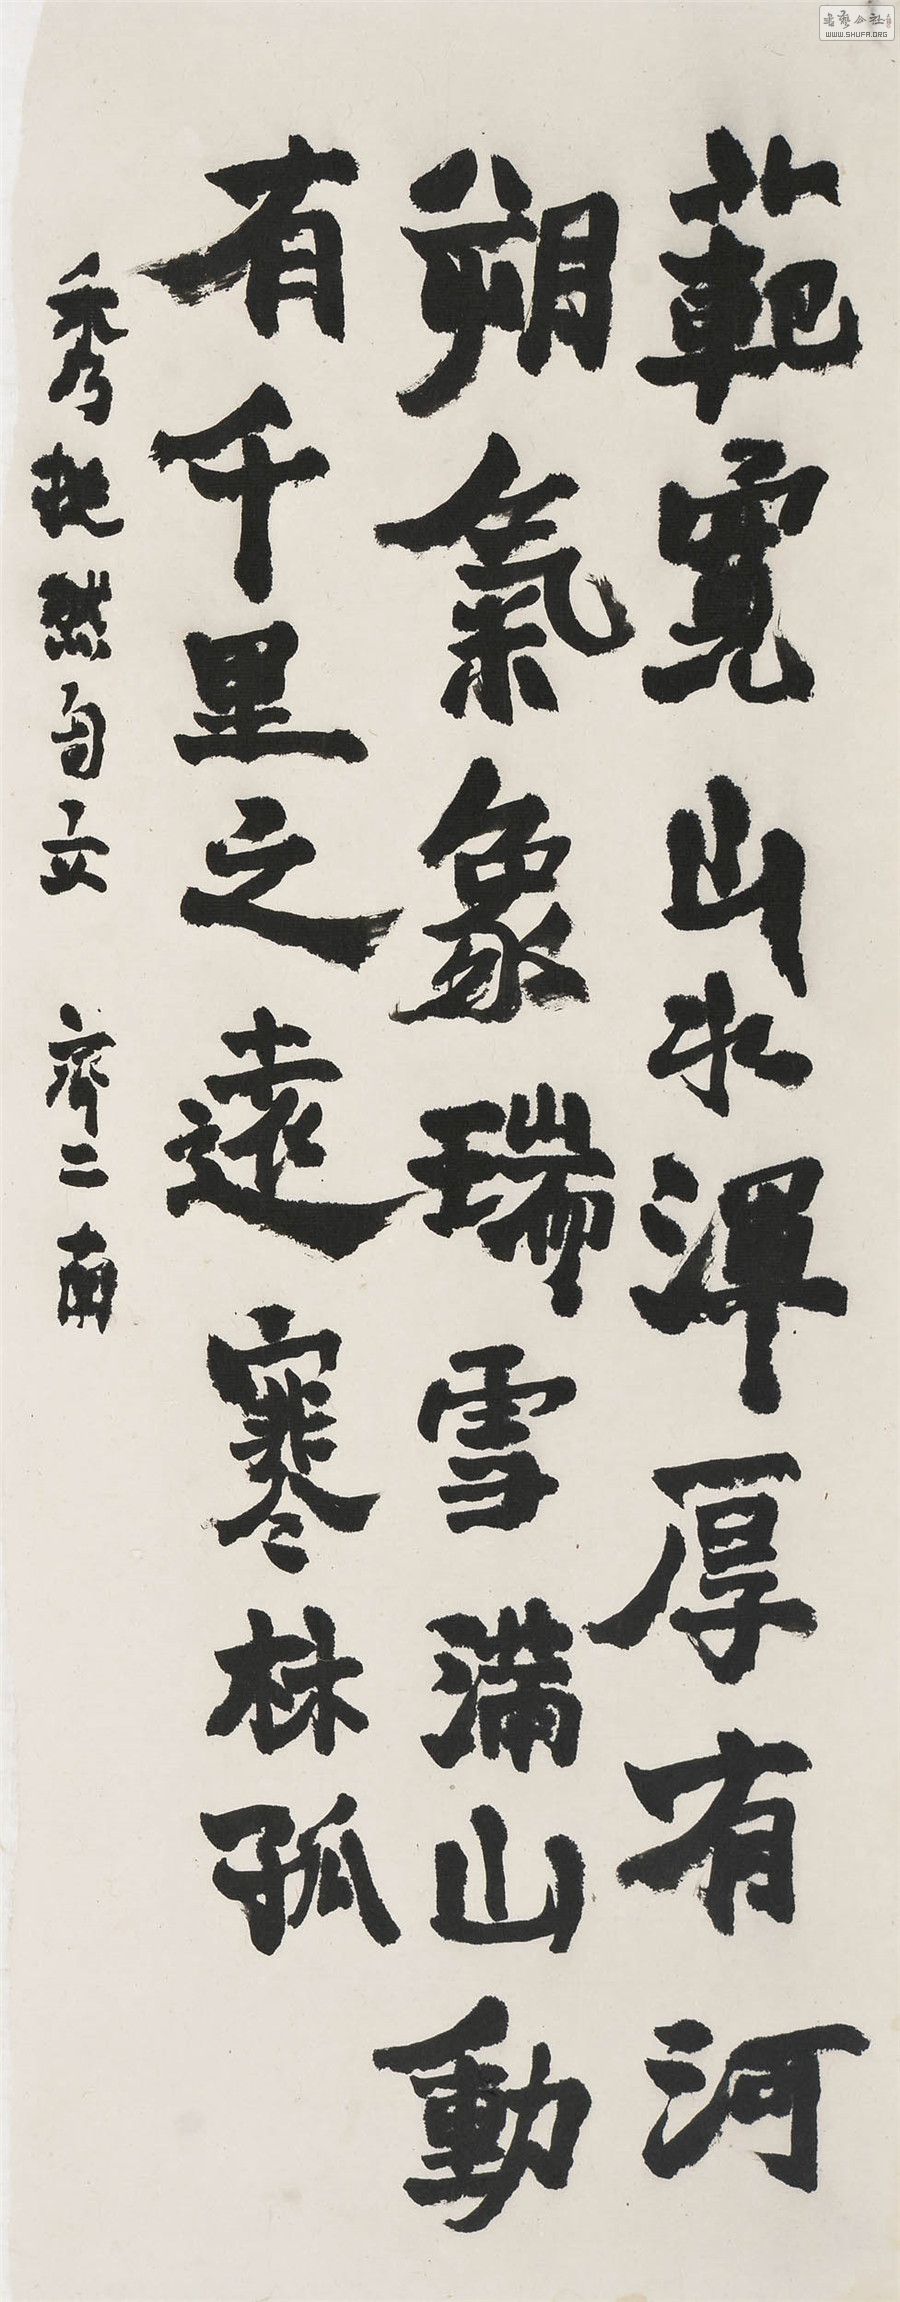 範寬山水渾厚有河
朔氣象瑞雪滿山動
有千里之遠寒林孤
秀挺然自立 齊二南
書藝公社
WWW.SHUFA.ORG